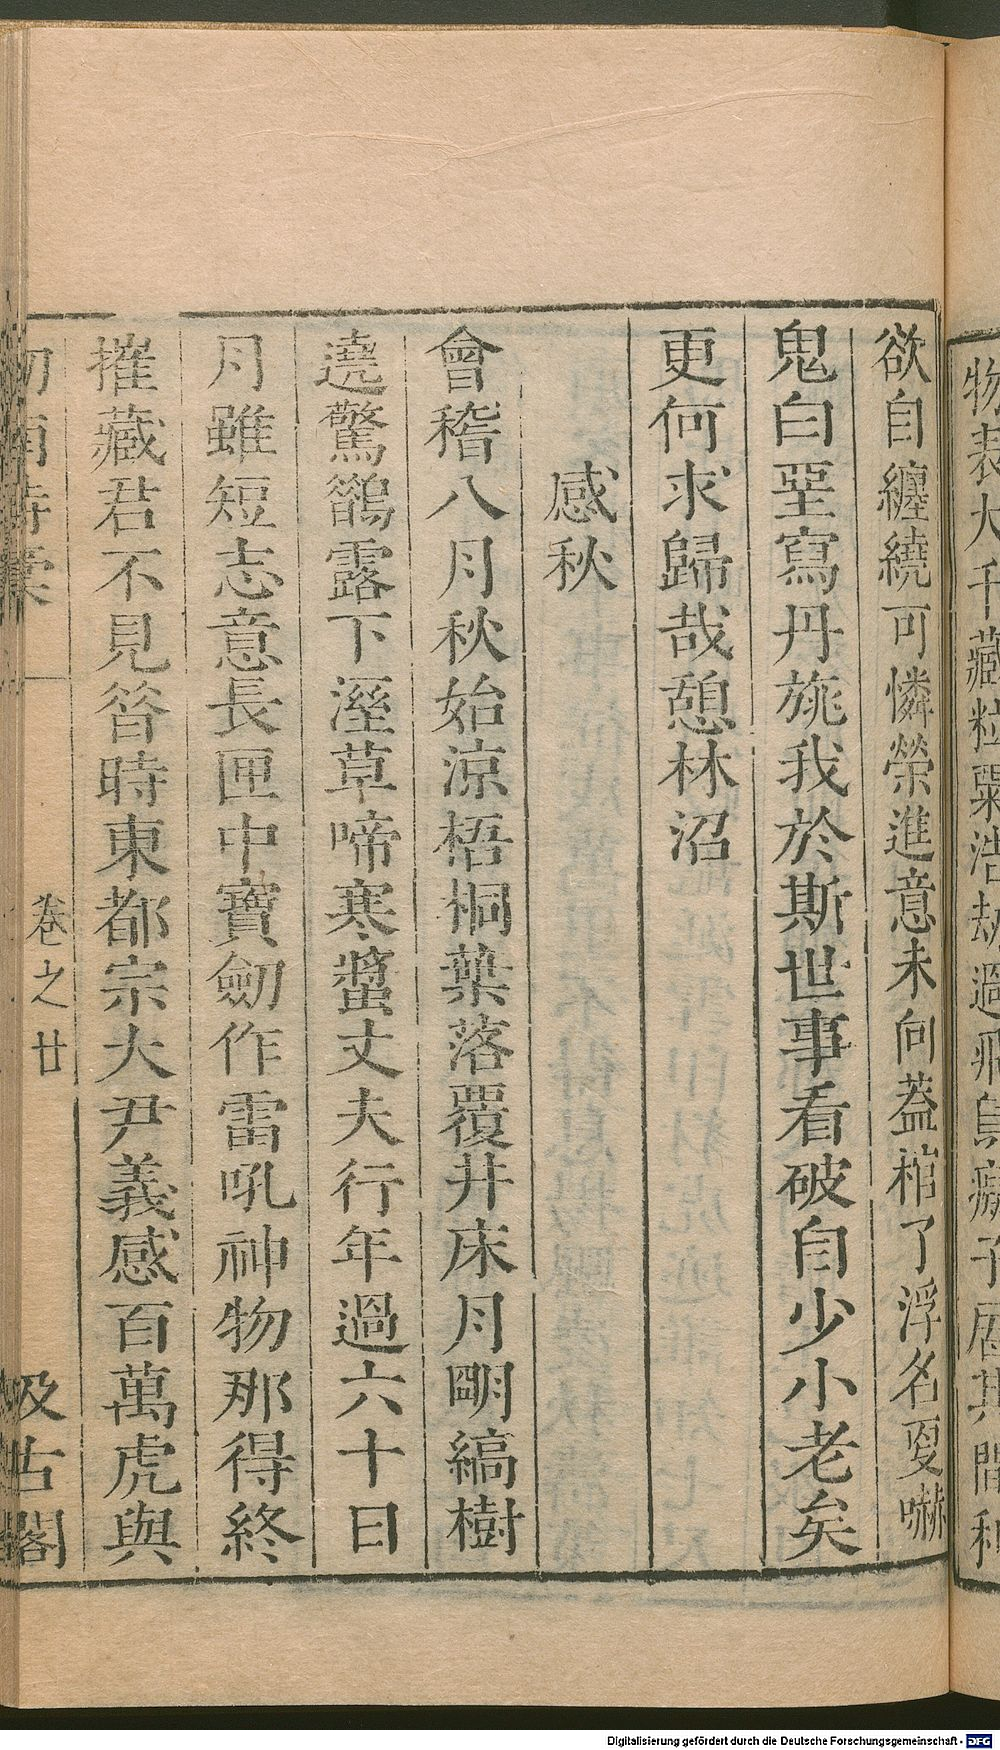 物表大千藏粒粟浩劫過飛鳥癡子居其間利
欲自纏繞可憐榮進意未向蓋棺了浮名夏嚇
鬼白堊寫丹旐我於斯世事看破自少小老矣
更何求歸哉憩林沼
感秋
會稽八月秋始涼梧桐葉落覆井床月明縞樹
遶驚鵲露下溼草啼寒螿丈夫行年過六十日
月雖短志意長匣中寶劒作雷吼神物那得終
摧藏君不見昝時東都宗大尹義感百萬虎與
劒南詩稾
卷之廿
汲古閣
Digitalisierung gefördert durch die Deutsche Forschungsgemeinschaft - DFG